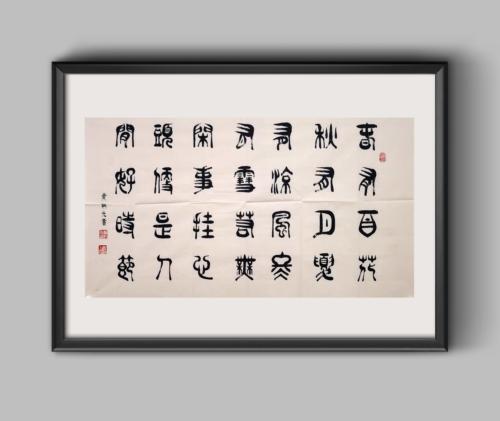 春有百花
秋有月夏
有涼風冬
有雪若無
閑事挂心
頭便是人
間好時節